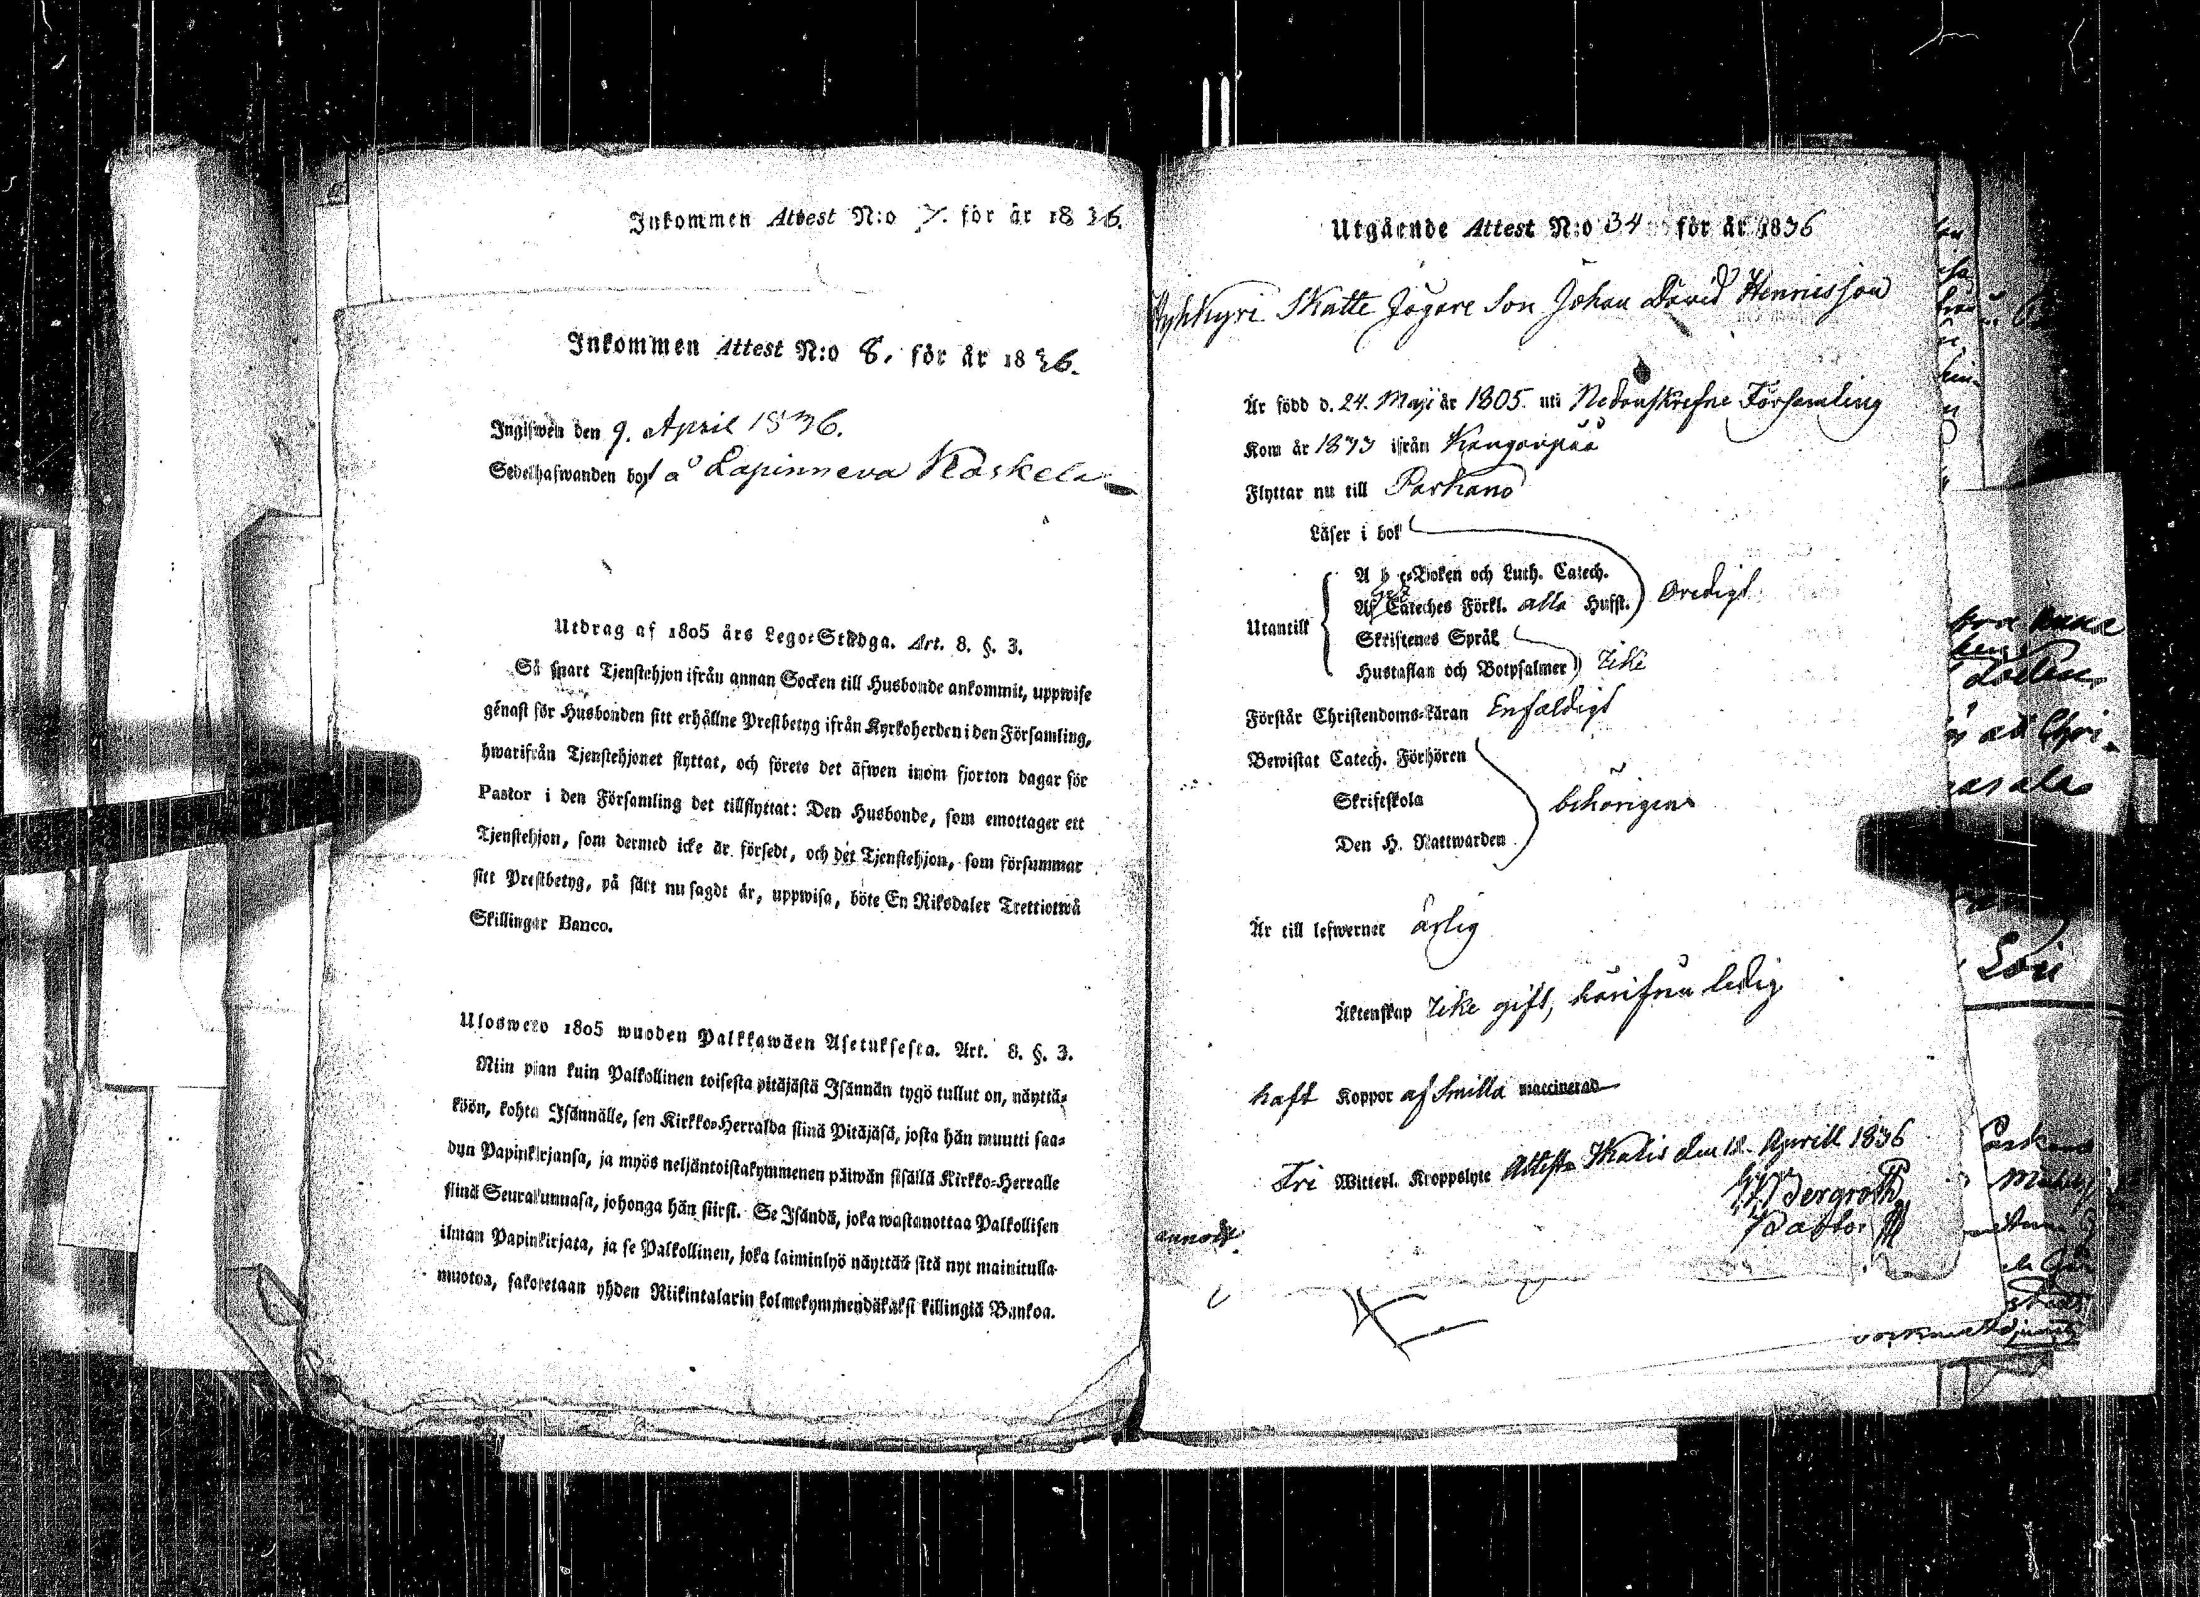 Inkommen Attest N:o 7. för år 1836.
Inkommen Attest N:o 8. för år 1836.
Ingifwen den 9. April 1836.
Sedelhafwanden bor å Lapinneva Kaskela
Utdrag af 1805 års Lego-Stadga. Art. 8. §. 3.
Så snart Tjenstehjon ifrån annan Socken till Husbonde ankommit, uppwise
genast för Husbonden sitt erhållne Prestbetyg ifrån Kyrkoherden i den Församling,
hwarifrån Tjenstehjonet flyttat, och förete det äfwen inom fjorton dagar för
Pastor i den Församling det tillflyttat: Den Husbonde, som emottager ett
Tjenstehjon, som dermed icke är försedt, och det Tjenstehjon, som försummar
sitt Prestbetyg, på sätt nu sagdt är, uppwisa, böte En Riksdaler Trettiotwå
Skillingar Banco.
Ulosweto 1805 wuoden Palkkawäen Asetuksesta. Art. 8. §. 3.
Niin pian kuin Palkollinen toisesta pitäjästä Isännän tygö tullut on, näyttä-
köön, kohta Isännälle, sen Kirkko-Herralda siinä Pitäjäsä, josta hän muutti saa-
dun Papinkirjansa, ja myös neljäntoistakymmenen päiwän sisällä Kirkko-Herralle
siinä Seurakunnasa, johonga hän siirsi. Se Isändä, joka wastanottaa Palkollisen
ilman Papinkirjata, ja se Palkollinen, joka laiminlyö näyttää sitä nyt mainitulla
muotoa, sakotetaan yhden Riikintalarin kolmekymmendäkaksi killingiä Bankoa.
Utgående Attest N:o 34 för år 1836
Kyhkyri Skatte Jägare Son Johan David Henricsson
Är född d. 24. Maji år 1805. uti Nedanskrefne Församling
Kom år 1833 ifrån Kangonpää
Flyttar nu till Parkano
Läser i bok
A b c-Boken och Luth. Catech.
Af Cateches Förkl. alla Hufst. oredigt
Utantill
Skriftenes Språk
Hustaflan och Botpsalmer icke
Förstår Christendoms-Läran Enfaldigt
Bewistat Catech. Förhören
Skriftskola behörigen
Den H. Nattwarden
Är till lefwernet ärlig
Äktenskap icke gift, ledig
haft Koppor af Smitta vaccinerad
Fri Witterl. Kroppslyte Attest. Ikalis den 18. Aprill 1836
Bergroth
Pastor